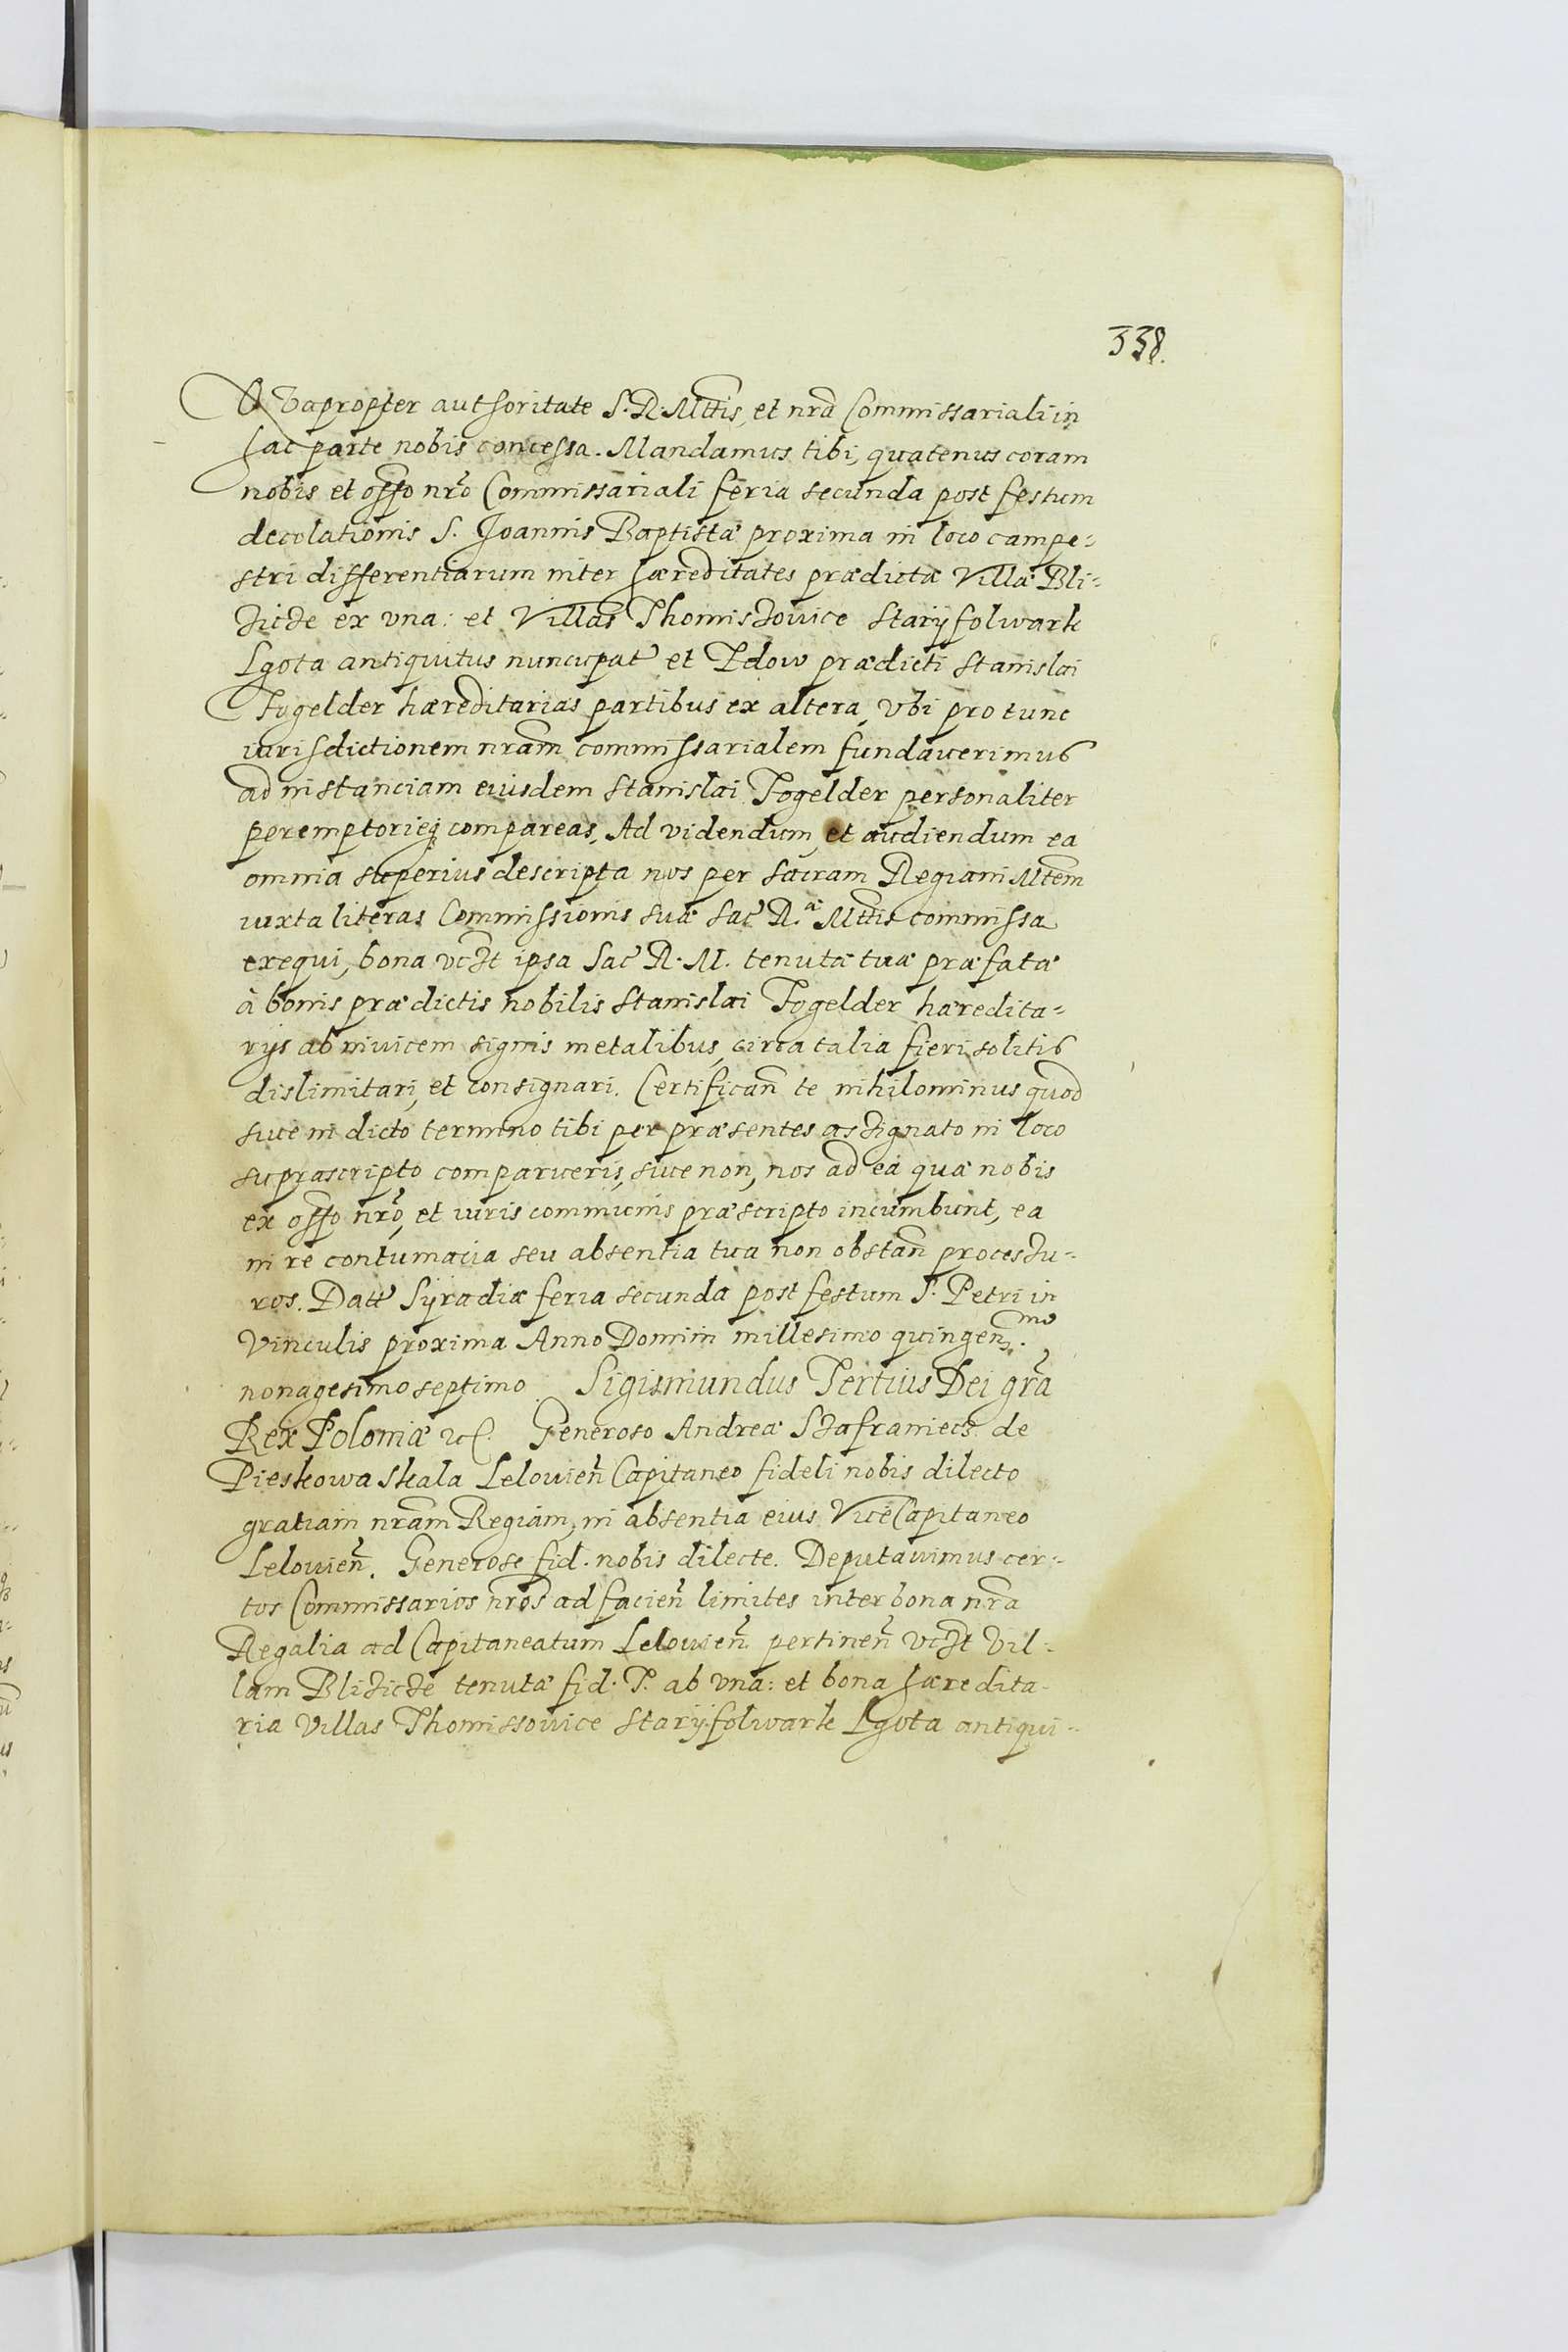 338.
Quapropter authoritate S. R. Mttis, et nra Commissariali in
hac parte nobis concessa. Mandamus tibi, quatenus coram
nobis et offo nro Commissariali feria secunda post festum
decolationis S. Joannis Baptistæ proxima in loco campe-
stri differentiarum inter hæreditates prædictæ Villæ Bli-
zicze ex vna: et Villas Thomiszowice Staryfolwark
Lgota antiquitus nuncupat et Zdow prædicti Stanislai
Fogelder hæreditarias partibus ex altera, Vbi pro tunc
iurisdictionem nram commissarialem fundauerimus
ad instanciam eiusdem Stanislai Fogelder personaliter
peremptorieq compareas, Ad videndum, et audiendum ea
omnia superius descripta nos per Sacram Regiam Mtem
iuxta literas Commissionis suæ Sac R.æ Mttis commissa
exequi, bona vczt ipsa Sac R. M. tenutæ tuæ præfatæ
à bonis prædictis nobilis Stanislai Fogelder hæredita-
rijs ab inuicem signis metalibus, circa talia fieri solitis
dislimitari, et consignari. Certifican te nihilominus quod
siue in dicto termino tibi per præsentes aszignato in loco
suprascripto comparueris, siue non, nos ad ea quæ nobis
ex offo nro, et iuris communis præscripto incumbunt, ea
in re contumacia seu absentia tua non obstan proceszu-
ros. Datt Syradiæ feria secunda post festum S. Petri in
Vinculis proxima Anno Domini millesimo quingenmo.
nonagesimo septimo Sigismundus Tertius Dei gra
Rex Poloniæ etc. Generoso Andreæ Szafraniecz de
Pieskowa Skala Lelouien Capitaneo fideli nobis dilecto
gratiam nram Regiam, in absentia eius ViceCapitaneo
Lelouien. Generose fid. nobis dilecte. Deputauimus cer-
tos Commissarios nros ad facien limites inter bona nra
Regalia ad Capitaneatum Lelouien pertinen vczt Vil-
lam Blizicze tenutæ fid. T. ab vna: et bona hæredita-
ria Villas Thomissouice Staryfolwark Lgota antiqui-